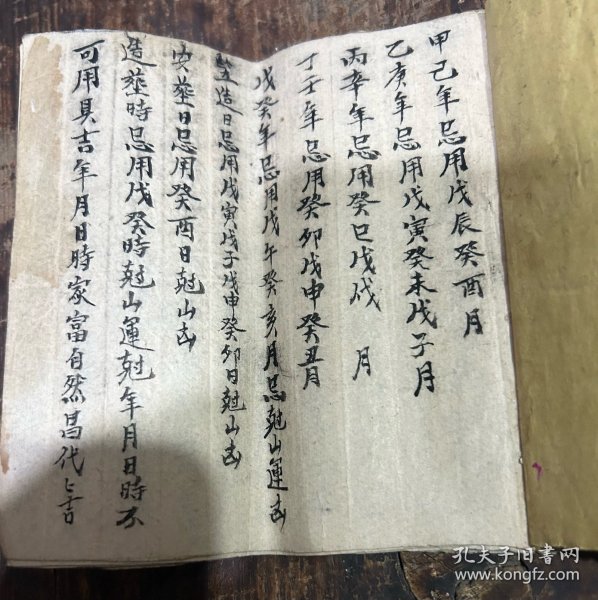 甲己年忌用戊辰癸酉月
乙庚年忌用戊寅癸未戊子月
丙辛年忌用癸巳戊戌月
丁壬年忌用癸卯戊申癸丑月
戊癸年忌用戊午癸亥月忌尅山運凶
造日忌用戊寅戊子戊申癸卯日尅山凶
安葬日忌用癸酉日尅山凶
造葬時忌用戊癸時尅山運尅年月日時不
可用具吉年月日時家富自然昌代
吉
孔夫子旧書网
www.kongfz.com